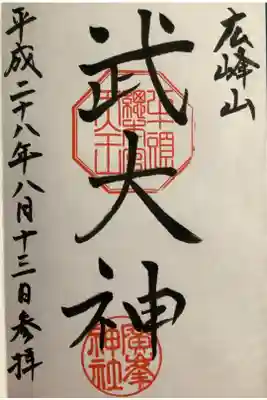 広峰山
武大神
平成二十八年八月十三日参拝
牛頭
總本宮
天王
廣峯
神社